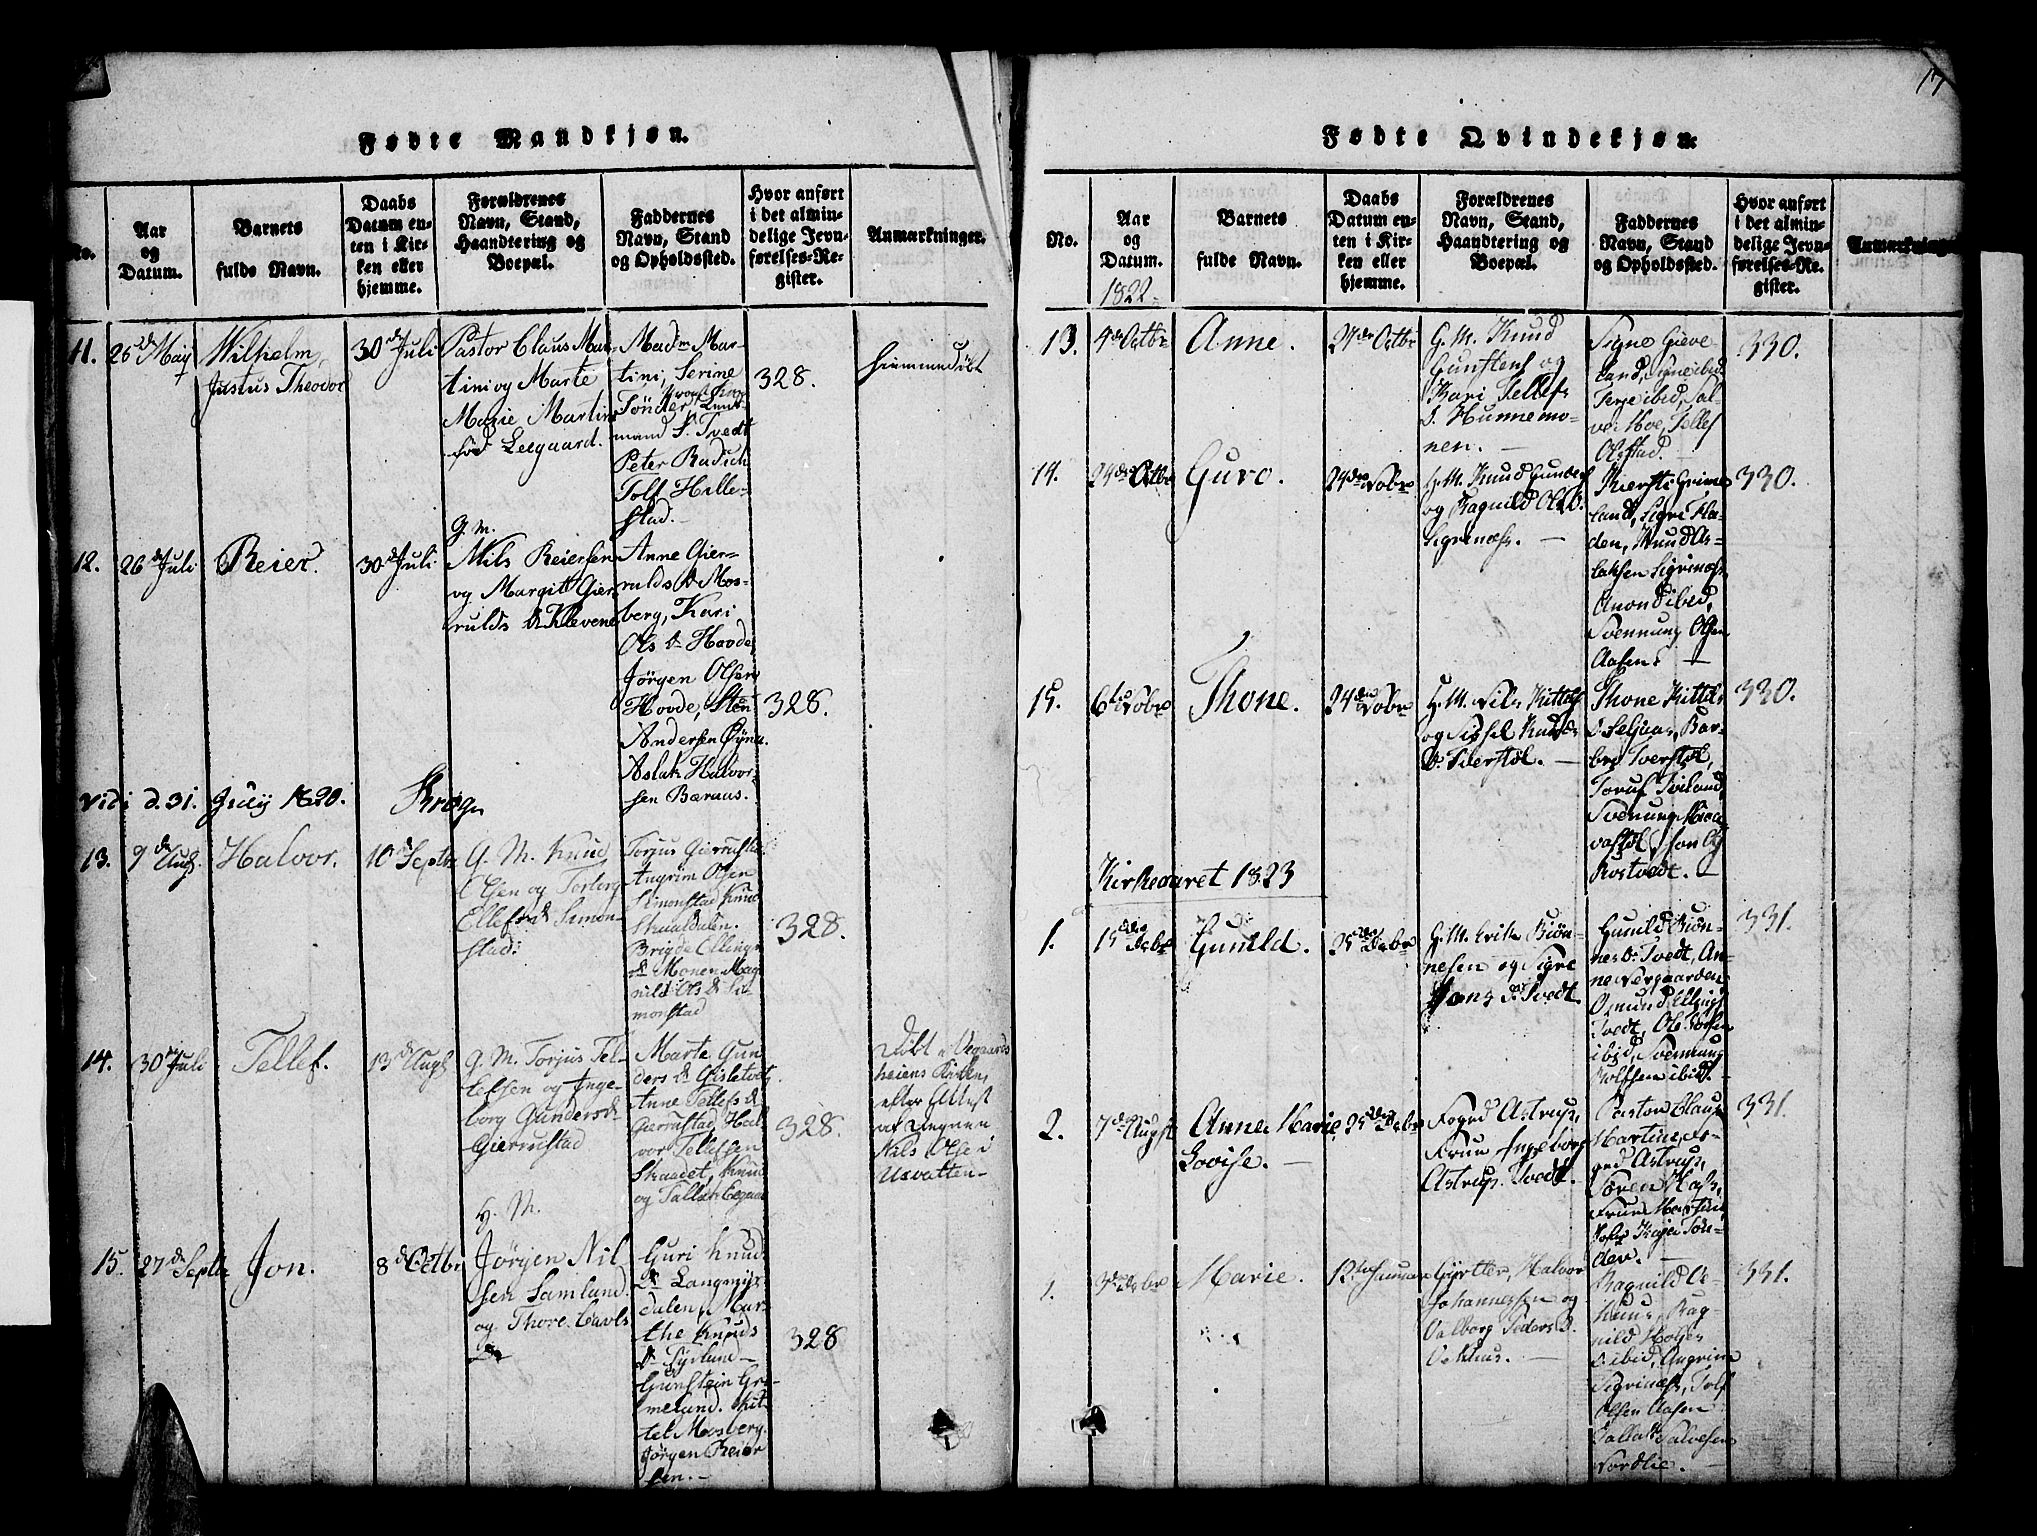 17
Fødte Mandkjøn.
No.
Aar
og
Datum.
Barnets
fulde Navn.
Daabs
Datum en-
ten i Kir-
ken eller
hjemme.
Forældrenes
Navn, Stand,
Haandtering og
Boepæl.
Faddernes
Navn, Stand
og Opholdssted.
Hvor anført
i det almin-
delige Jevn-
førelses-Re-
gister.
Anmærkninger.
11.
26de May
Wilhelm,
Justus Theodor
30d Juli
Pastor Claus Mar-
tini og Marte
Marie Martini
fød Leegaard.
Madm Mar-
tini, Serine
Tønder
mand S. Tvedt
Peter Budich
Tolf Hille-
stad.
328.
hiemmedøbt
12.
26d Juli
Reier.
30d Juli
G. M.
Nils Reiersen
og Margit Gier
rulds D. Klevene
Anne Gier-
rulds D. Mos-
berg, Kari
Ols D. Hovde,
Jørgen Olsen
Hovde, Sten
Andersen Øyna.
Aslak Halvor-
sen Baraas.
328.
Vidi d. 31. July 1820.
Krog
13.
9de Aug.
Halvor.
10d Septr
G. M. Knud
Olsen og Torborg
Ellefs D. Simon-
stad.
Torjus Gierrustad.
Angrim Olsen
Simonstad, Knud
Skaaldalen.
Brigde Ellings
D. Monen, Mag
nild Ols D. Si-
monstad
328.
14.
30d Juli
Tellef.
13d Augt
G. M. Torjus Tel-
lefsen og Inge-
borg Gunders D.
Gierrustad
Marte Gun
ders D. Gisletvedt
Anne Tellefs D.
Gierrustad, Hal-
vor Tellefsen
Skaadet, Knud
og Tallak Egaas
328.
Døbt i Vegaards
heiens Kirke,
efter Attest
af Degnen
Nils Olsen i
Usvatten
15.
27d Septr
Jon.
8d Octbr
G. M.
Jørgen Nil
sen Lamlund.
og Thore Cavls
D.
Guri Knuds
D. Langmyr
dalen, Mar-
the Knuds
D. Syrlund
Gunstein Gri-
meland. Kit-
tel Mosberg.
Jørgen Reier
sen.
328
Fødte Qvindekjøn.
No.
Aar
og
Datum.
1822.
Barnets
fulde Navn.
Daabs
Datum en-
ten i Kir-
ken eller
hjemme.
Forældrenes
Navn, Stand,
Haandtering og
Boepæl.
Faddernes
Navn, Stand
og Opholdssted.
Hvor anført
i det almin-
delige Jevn-
førelses-Re-
gister.
Anmærkninger
13.
4de Octbr
Anne.
27de Octbr
G. M. Knud
Gunstens og
Kari Tellefs
D. Hunnemo-
nen.
Signe Gieve
land, Signe ibid
Terje ibid, Sal-
ve Hoe, Tellef
Olstad.
330.
14.
24de Octbr
Guro.
24de Nobr
G. M. Knud Gunders
og Ragnild Ols D.
Sigvinæss.
Kiersti Grime
land, Sigri Fla-
den, Knud As-
laksen Sigvinæss
Anond ibid,
Svennung Olsen
Aasen.
330.
15.
6te Nobr
Thone.
24de Nobr
G. M. Nils Kittels
og Sissel Knuds
D. Tverstøl.
Thone Kittels
D. Seljaas, Bar-
bro Tverstøl,
Toruf Tviland,
Svenung Haa
vastøl,
Rostvedt.
330.
Kirkeaaret 1823
1.
15de Debr
Gunild.
25de Debr
G. M. Erik Biøn-
nesen og Signe
Jons D. Tvedt.
Gunild Biøn-
nes D. Tvedt, An-
ne Nergaarden
Osmund Ellings
Tvedt, Ole
ibid, Svennung
Rolfsen ibid.
331.
2.
7de Augst
Anne Marie
Lovise.
25de Debr
Foged Astrup,
Frue Ingeborg
Astrup Tvedt.
Pastor Claus
Martini, Fo-
ged Astrup,
Søren
Frue Martini
Jofr Kaja Tøn-
der.
331.
1.
3de Debr
Marie.
12te Januar
Gjørtler, Halvor
Johannessen og
Valborg Peders D.
Vehuus.
Ragnild Ve-
huus, Rag-
nild
D. ibid, Angrim
Sigvinæss, Tolf
Olsen Aasen
Tallak Salvesen
Nordlie.
331.